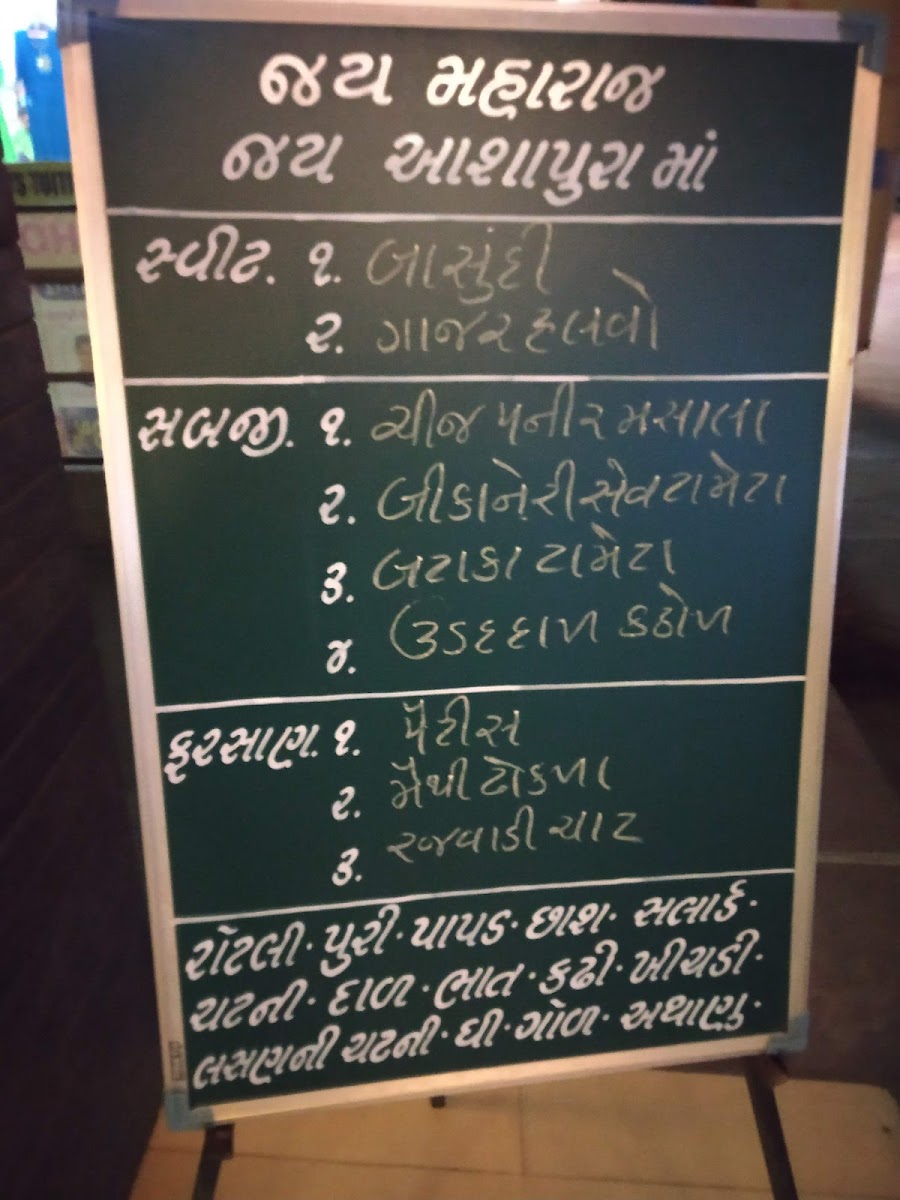 જય મહારાજ
જય આશાપુરા માં
સ્વીટ. ૧. બાસુંદી
૨. ગાજર હલવો
સબજી. ૧. ચીજ પનીર મસાલા
૨. બીકાનેરી સેવ ટામેટા
૩. બટાકા ટામેટા
૪. ઉડદ દાળ કઠોળ
ફરસાણ. ૧. પૈટીસ
૨. મૈથી ઢોકળા
૩. રજવાડી ચાટ
રોટલી · પુરી · પાપડ · છાશ · સલાર્ડ ·
ચટની · દાળ · ભાત · કઢી · ખીચડી ·
લસણની ચટની · ઘી · ગોળ · અથાણુ ·